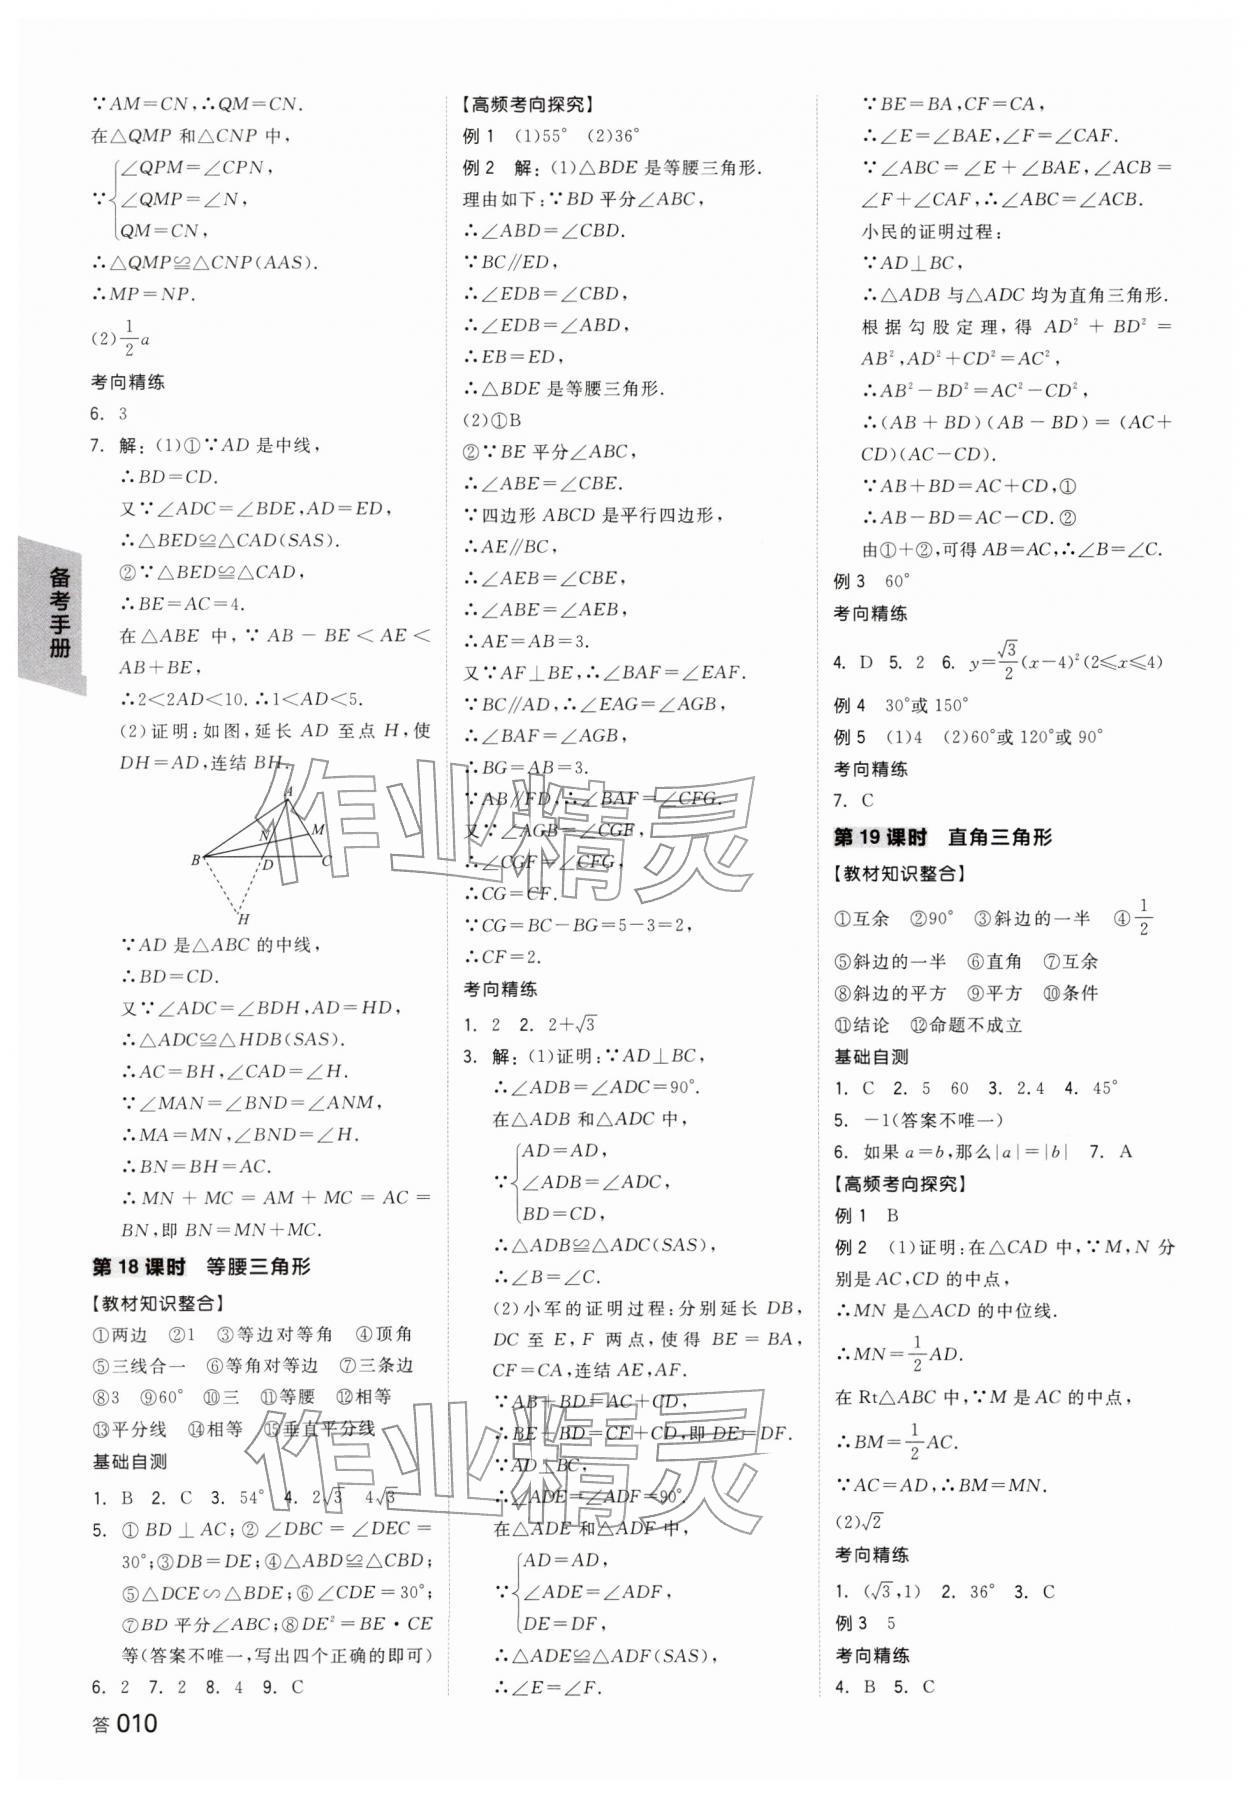 ∵AM=CN,∴QM=CN.
在△QMP 和△CNP 中,
∠QPM=∠CPN,
∵ ∠QMP=∠N,
QM=CN,
∴△QMP≌△CNP(AAS).
∴MP=NP.
(2)1/2 a
考向精练
6. 3
7. 解:(1)①∵AD 是中线,
∴BD=CD.
又∵∠ADC=∠BDE,AD=ED,
∴△BED≌△CAD(SAS).
②∵△BED≌△CAD,
∴BE=AC=4.
在△ABE 中,∵ AB-BE<AE<
AB+BE,
∴2<2AD<10.∴1<AD<5.
(2)证明:如图,延长 AD 至点 H,使
DH=AD,连结 BH.
A
N
M
B
D
C
H
∵AD 是△ABC 的中线,
∴BD=CD.
又∵∠ADC=∠BDH,AD=HD,
∴△ADC≌△HDB(SAS).
∴AC=BH,∠CAD=∠H.
∵∠MAN=∠BND=∠ANM,
∴MA=MN,∠BND=∠H.
∴BN=BH=AC.
∴MN+MC=AM+MC=AC=
BN,即 BN=MN+MC.
第 18 课时 等腰三角形
【教材知识整合】
①两边 ②1 ③等边对等角 ④顶角
⑤三线合一 ⑥等角对等边 ⑦三条边
⑧3 ⑨60° ⑩三 ⑪等腰 ⑫相等
⑬平分线 ⑭相等 ⑮垂直平分线
基础自测
1. B 2. C 3. 54° 4. 2√3 4√3
5. ①BD⊥AC;②∠DBC=∠DEC=
30°;③DB=DE;④△ABD≌△CBD;
⑤△DCE∽△BDE;⑥∠CDE=30°;
⑦BD 平分∠ABC;⑧DE²=BE·CE
等(答案不唯一,写出四个正确的即可)
6. 2 7. 2 8. 4 9. C
答 010
【高频考向探究】
例 1 (1)55° (2)36°
例 2 解:(1)△BDE 是等腰三角形.
理由如下:∵BD 平分∠ABC,
∴∠ABD=∠CBD.
∵BC∥ED,
∴∠EDB=∠CBD,
∴∠EDB=∠ABD,
∴EB=ED,
∴△BDE 是等腰三角形.
(2)①B
②∵BE 平分∠ABC,
∴∠ABE=∠CBE.
∵四边形 ABCD 是平行四边形,
∴AE∥BC,
∴∠AEB=∠CBE,
∴∠ABE=∠AEB,
∴AE=AB=3.
又∵AF⊥BE,∴∠BAF=∠EAF.
∵BC∥AD,∴∠EAG=∠AGB,
∴∠BAF=∠AGB,
∴BG=AB=3.
∵AB∥FD,∴∠BAF=∠CFG.
又∵∠AGB=∠CGF,
∴∠CGF=∠CFG,
∴CG=CF.
∵CG=BC-BG=5-3=2,
∴CF=2.
考向精练
1. 2 2. 2+√3
3. 解:(1)证明:∵AD⊥BC,
∴∠ADB=∠ADC=90°.
在△ADB 和△ADC 中,
AD=AD,
∵ ∠ADB=∠ADC,
BD=CD,
∴△ADB≌△ADC(SAS),
∴∠B=∠C.
(2)小军的证明过程:分别延长 DB,
DC 至 E,F 两点,使得 BE=BA,
CF=CA,连结 AE,AF.
∵AB+BD=AC+CD,
∴BE+BD=CF+CD,即 DE=DF.
∵AD⊥BC,
∴∠ADE=∠ADF=90°.
在△ADE 和△ADF 中,
AD=AD,
∵ ∠ADE=∠ADF,
DE=DF,
∴△ADE≌△ADF(SAS),
∴∠E=∠F.
∵BE=BA,CF=CA,
∴∠E=∠BAE,∠F=∠CAF.
∵∠ABC=∠E+∠BAE,∠ACB=
∠F+∠CAF,∴∠ABC=∠ACB.
小民的证明过程:
∵AD⊥BC,
∴△ADB 与△ADC 均为直角三角形.
根据勾股定理,得 AD²+BD²=
AB²,AD²+CD²=AC²,
∴AB²-BD²=AC²-CD²,
∴(AB+BD)(AB-BD)=(AC+
CD)(AC-CD).
∵AB+BD=AC+CD,①
∴AB-BD=AC-CD.②
由①+②,可得 AB=AC,∴∠B=∠C.
例 3 60°
考向精练
4. D 5. 2 6. y=√3/2(x-4)²(2≤x≤4)
例 4 30°或 150°
例 5 (1)4 (2)60°或 120°或 90°
考向精练
7. C
第 19 课时 直角三角形
【教材知识整合】
①互余 ②90° ③斜边的一半 ④1/2
⑤斜边的一半 ⑥直角 ⑦互余
⑧斜边的平方 ⑨平方 ⑩条件
⑪结论 ⑫命题不成立
基础自测
1. C 2. 5 60 3. 2.4 4. 45°
5. -1(答案不唯一)
6. 如果 a=b,那么|a|=|b| 7. A
【高频考向探究】
例 1 B
例 2 (1)证明:在△CAD 中,∵M,N 分
别是 AC,CD 的中点,
∴MN 是△ACD 的中位线.
∴MN=1/2 AD.
在 Rt△ABC 中,∵M 是 AC 的中点,
∴BM=1/2 AC.
∵AC=AD,∴BM=MN.
(2)√2
考向精练
1. (√3,1) 2. 36° 3. C
例 3 5
考向精练
4. B 5. C
备考手册
作业精灵
作业精灵